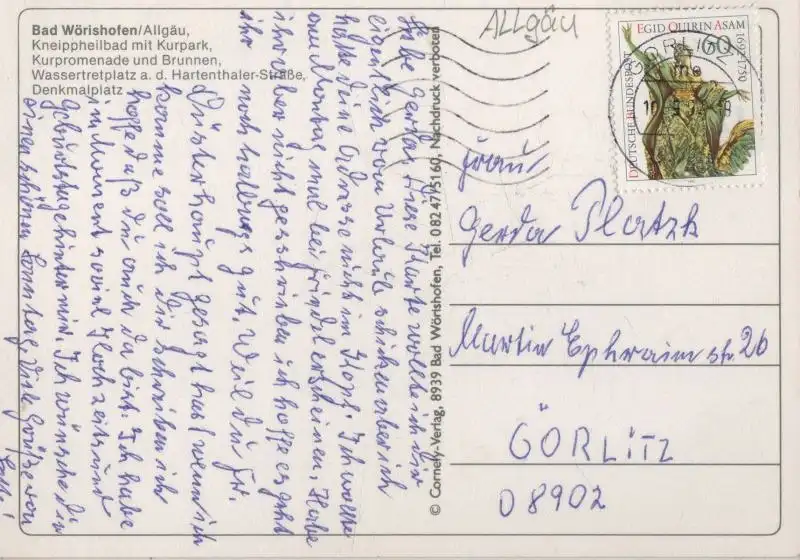 Bad Wörishofen/Allgäu,
Kneippheilbad mit Kurpark,
Kurpromenade und Brunnen,
Wassertretplatz a. d. Hartenthaler-Straße,
Denkmalplatz
ALLgäu
EGID QUIRIN ASAM
1692-1750
60
DEUTSCHE BUNDESPOST
GÖRLITZ
© Cornely-Verlag, 8939 Bad Wörishofen, Tel. 0 82 47/5160, Nachdruck verboten
Frau
Gerda Platzk
Martin Ephraimstr. 26
GÖRLITZ
O 8902
Liebe Gerda, diese Karte wollte ich dir
eigentlich vom Urlaub schicken aber ich
hatte deine Adresse nicht im Kopf. Ich wollte
am Montag mal bei erscheinen. Habe
ihr aber nicht geschrieben ich hoffe es geht
ihr noch halbwegs gut. Weil du Fr.
Düsterhaupt gesagt hast wenn ich
komme soll ich dir schreiben ich
hoffe daß du auch da bist. Ich habe
im Moment soviel Hochzeit und
Geburtstage hinter mir. Ich wünsche dir
einen schönen Sonntag. Viele Grüße von